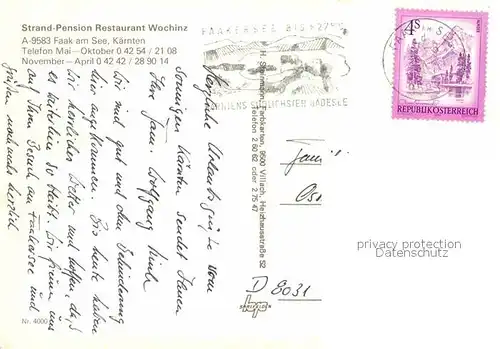 Strand-Pension Restaurant Wochinz
A-9583 Faak am See, Kärnten
Telefon Mai – Oktober 0 42 54 / 21 08
November – April 0 42 42 / 28 90 14
FAAKERSEE BIS +27°
KÄRNTENS SÜDLICHSTER BADESEE
4S
REPUBLIK ÖSTERREICH
Herzliche Urlaubsgrüße vom
sonnigen Kärnten sendet Ihnen
Ihre Fam. Wolfgang
Wir sind gut und ohne Behinderung
hier angekommen. Bis heute haben
wir herrliches Wetter und hoffen, daß
es weiterhin so bleibt. Wir freuen uns
auf Ihren Besuch am Faakersee und
grüßen nochmals herzlich
Farbkarten, 9500 Villach, Heizhausstraße 52
Telefon 2 60 62 oder 2 75 47
Fam.
D 8031
privacy protection
Datenschutz
Nr. 4000